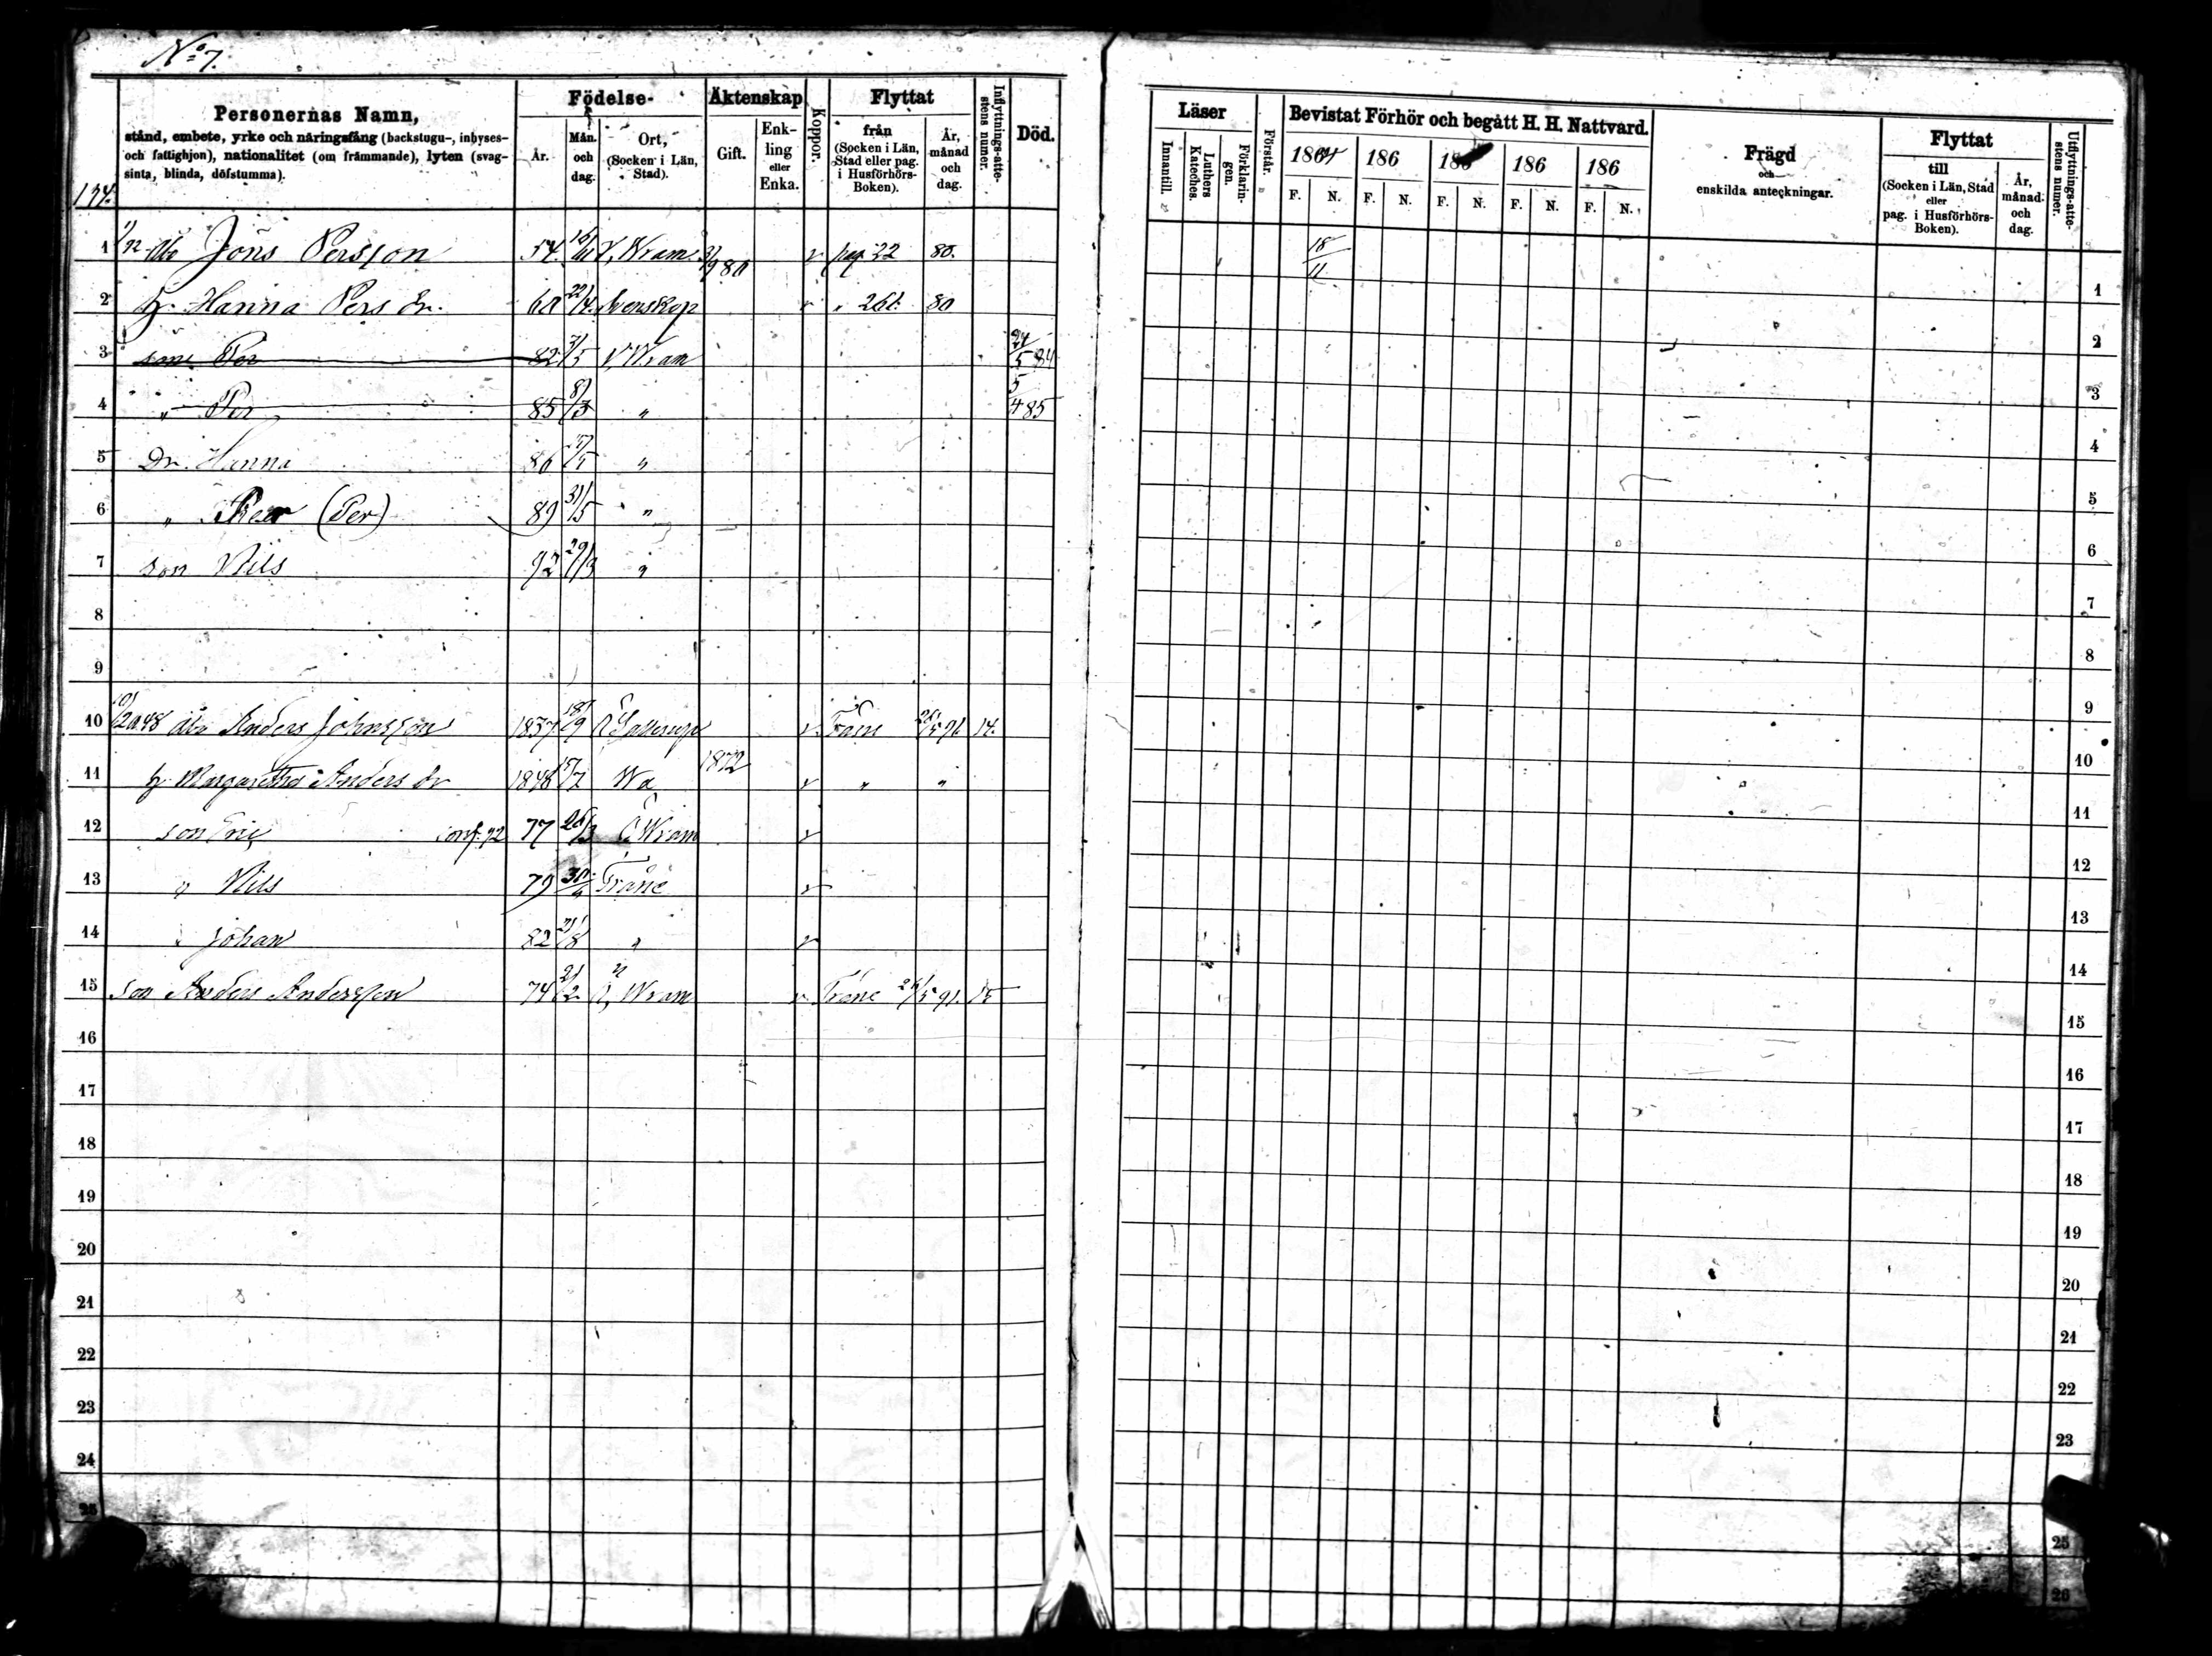 No 7.
Personernas Namn,
stånd, embete, yrke och näringsfång (backstugu-, inhyses-
och fattighjon), nationalitet (om främmande), lyten (svag-
sinta, blinda, döfstumma).
Födelse-
År.
Mån. och dag.
Ort, (Socken i Län, Stad).
Äktenskap
Gift.
Enk-ling eller Enka.
Koppor.
Flyttat
från (Socken i Län, Stad eller pag. i Husförhörs-Boken).
År, månad och dag.
Inflyttnings-atte-stens numer.
Död.
Läser
Innantill.
Luthers Kateches.
Förklarin-gen.
Förstår.
Bevistat Förhör och begått H. H. Nattvard.
1864 186 186 186 186
F. N. F. N. F. N. F. N. F. N.
Frägd
och
enskilda anteckningar.
Flyttat
till (Socken i Län, Stad eller pag. i Husförhörs-Boken).
År, månad och dag.
Utflyttnings-atte-stens numer.
1 Jöns Persson 54 V. Wram 80 v pag 22 80. 18/11
2 h. Hanna Pers dr. 60 22/4 Svenskop " 261 80
3 son Per 82 3/5 V Wram 24/5 84
4 " Per 85 8/3 " 5/4 85
5 Dr. Hanna 86 "
6 " (Per) 89 31/5 "
7 son Nils 92 29/3 "
8
9
10 Åbo Anders Johnsson 1837 18/9 v Träne 91 14.
11 h. Margaretha Anders dr 1848 Wa 1872 v " "
12 son conf. 92 77 26/3 Ö Wram v
13 " Nils 79 30 Träne v
14 " Johan 82 "  v
15 son Anders Andersson 74 2/2 Ö, Wram v Träne 26/5 91. 15
16
17
18
19
20
21
22
23
24
25
1
2
3
4
5
6
7
8
9
10
11
12
13
14
15
16
17
18
19
20
21
22
23
25
26